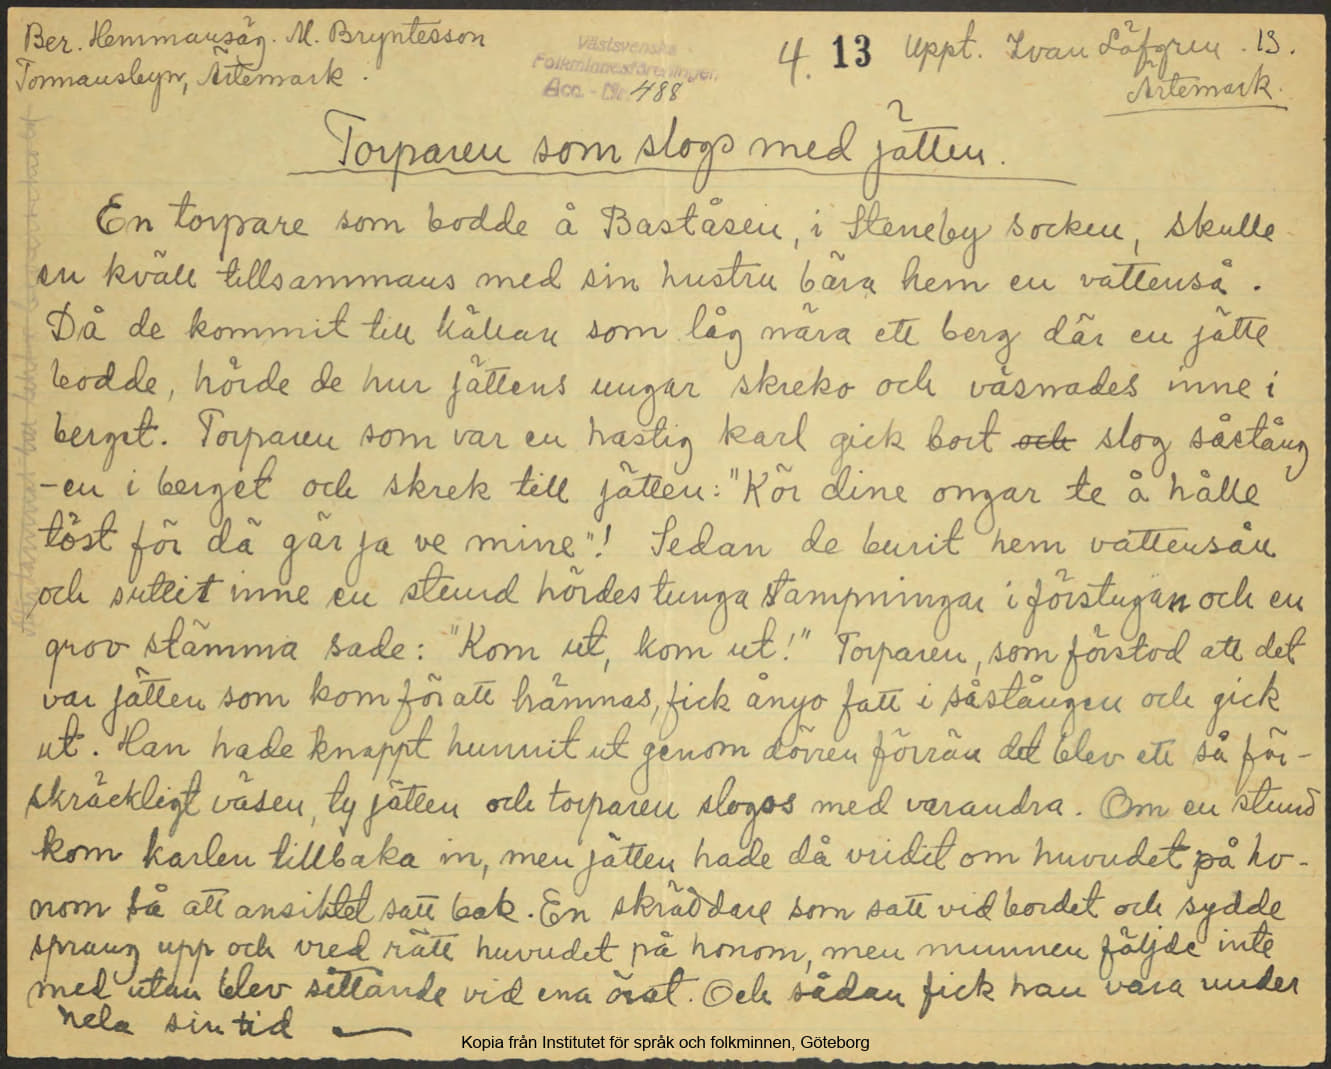 Ber. Hemmansäg. M. Bryntesson
Tonnansbyn, Ärtemark.
Västsvenska
Folkminnesföreningen
Acc. - Nr. 488
4. 13
Uppt. Ivan Löfgren. 13.
Ärtemark.
Torparen som slogs med jätten.
En torpare som bodde å Baståsen, i Steneby socken, skulle
en kväll tillsammans med sin hustru bära hem en vattenså.
Då de kommit till källan som låg nära ett berg där en jätte
bodde, hörde de hur jättens ungar skreko och väsnades inne i
berget. Torparen som var en hastig karl gick bort och slog såstång
-en i berget och skrek till jätten: "Kör dine ongar te å hålle
töst för dä gär ja ve mine"! Sedan de burit hem vattensån
och suttit inne en stund hördes tunga stampningar i förstugan och en
grov stämma sade: "Kom ut, kom ut!" Torparen, som förstod att det
var jätten som kom för att hämnas, fick ånyo fatt i såstången och gick
ut. Han hade knappt hunnit ut genom dörren förrän det blev ett så för-
skräckligt väsen, ty jätten och torparen slogos med varandra. Om en stund
kom karlen tillbaka in, men jätten hade då vridit om huvudet på ho-
nom så att ansiktet satt bak. En skräddare som satt vid bordet och sydde
sprang upp och vred rätt huvudet på honom, men munnen följde inte
med utan blev sittande vid ena örat. Och sådan fick han vara under
hela sin tid
Kopia från Institutet för språk och folkminnen, Göteborg